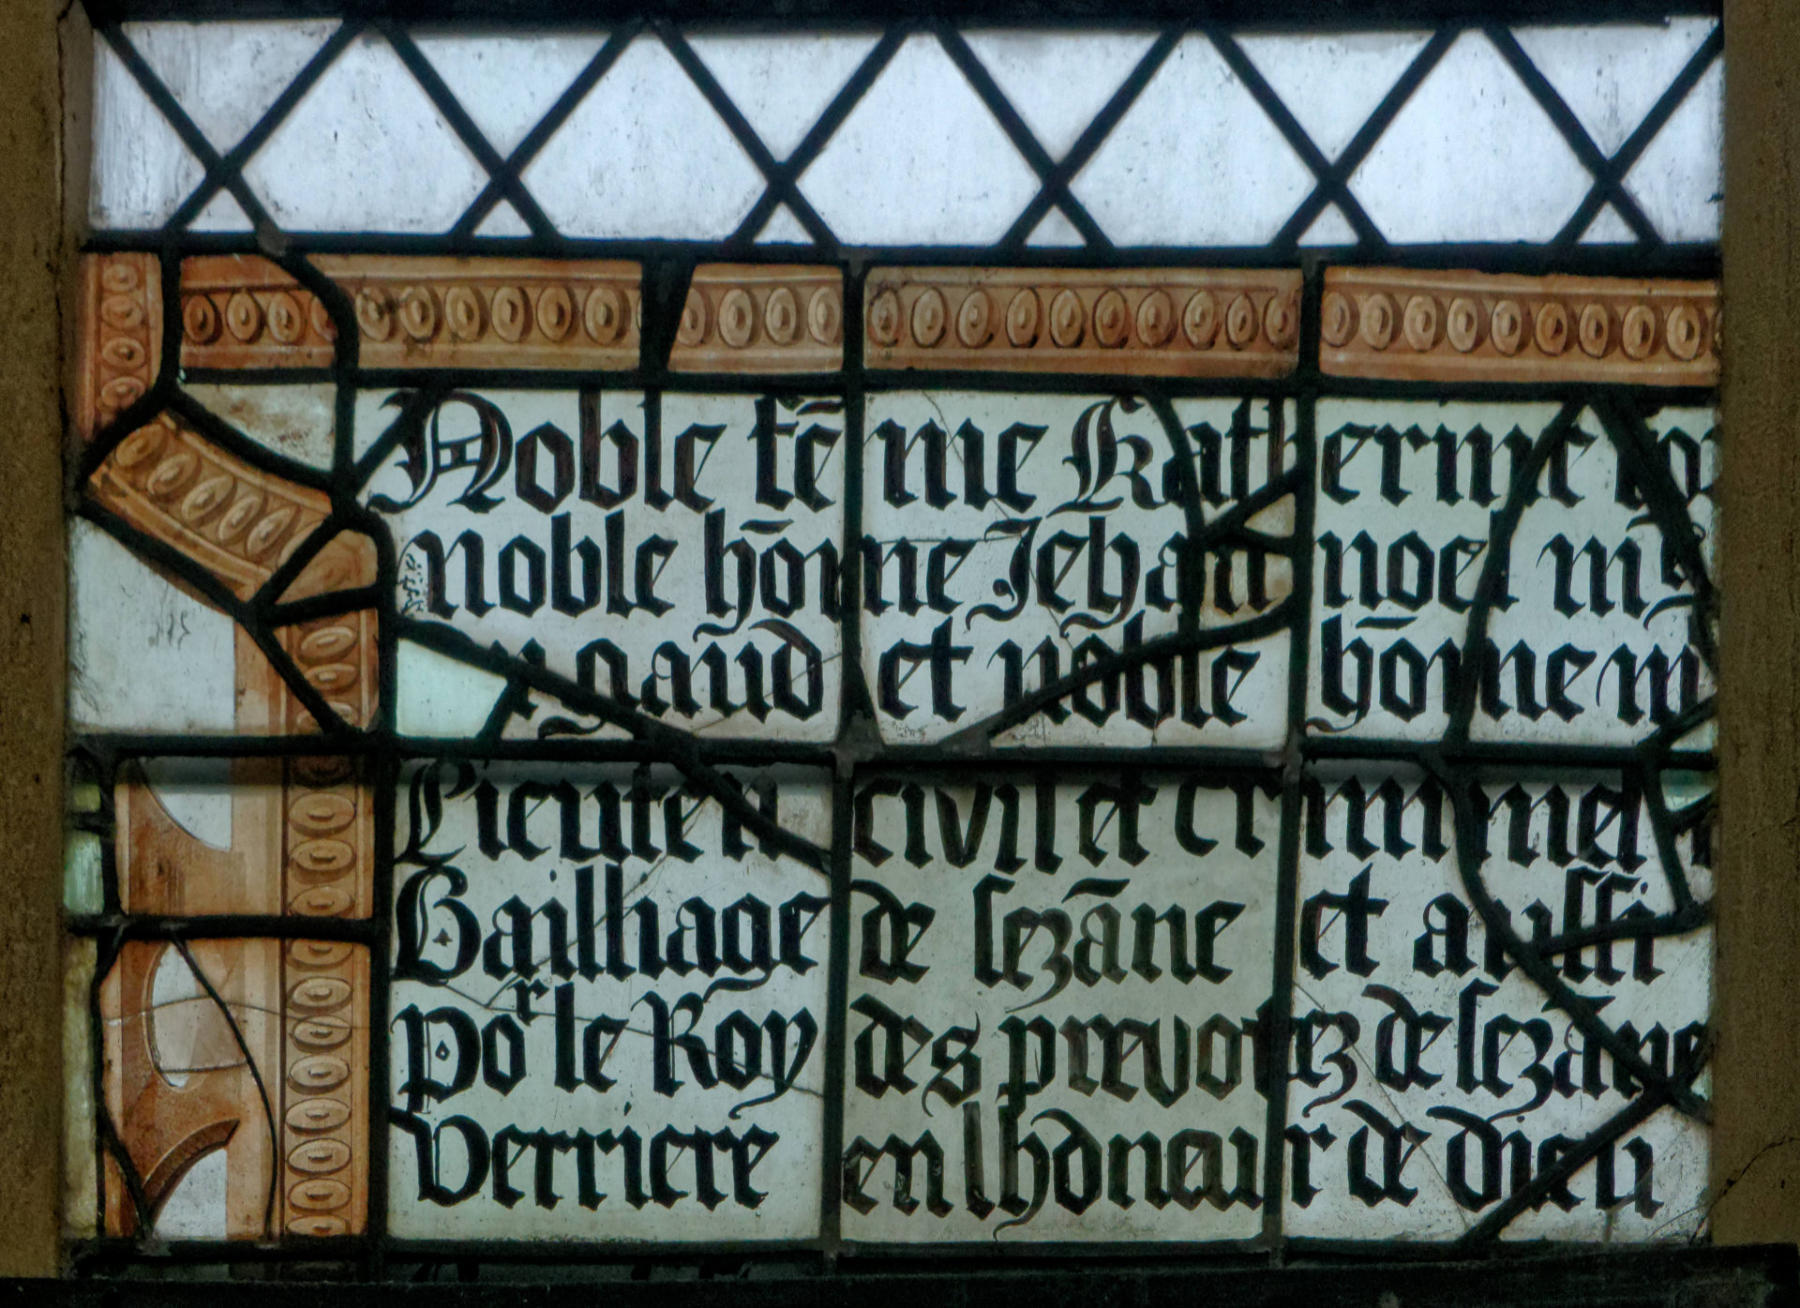 Noble fēme Katherine
noble hōme Jehan noel
et noble hōme
Lieuten civil et criminel
Bailliage de sezāne et aussi
por le Roy des prevotez de sezāne
verriere en lhoneur de dieu